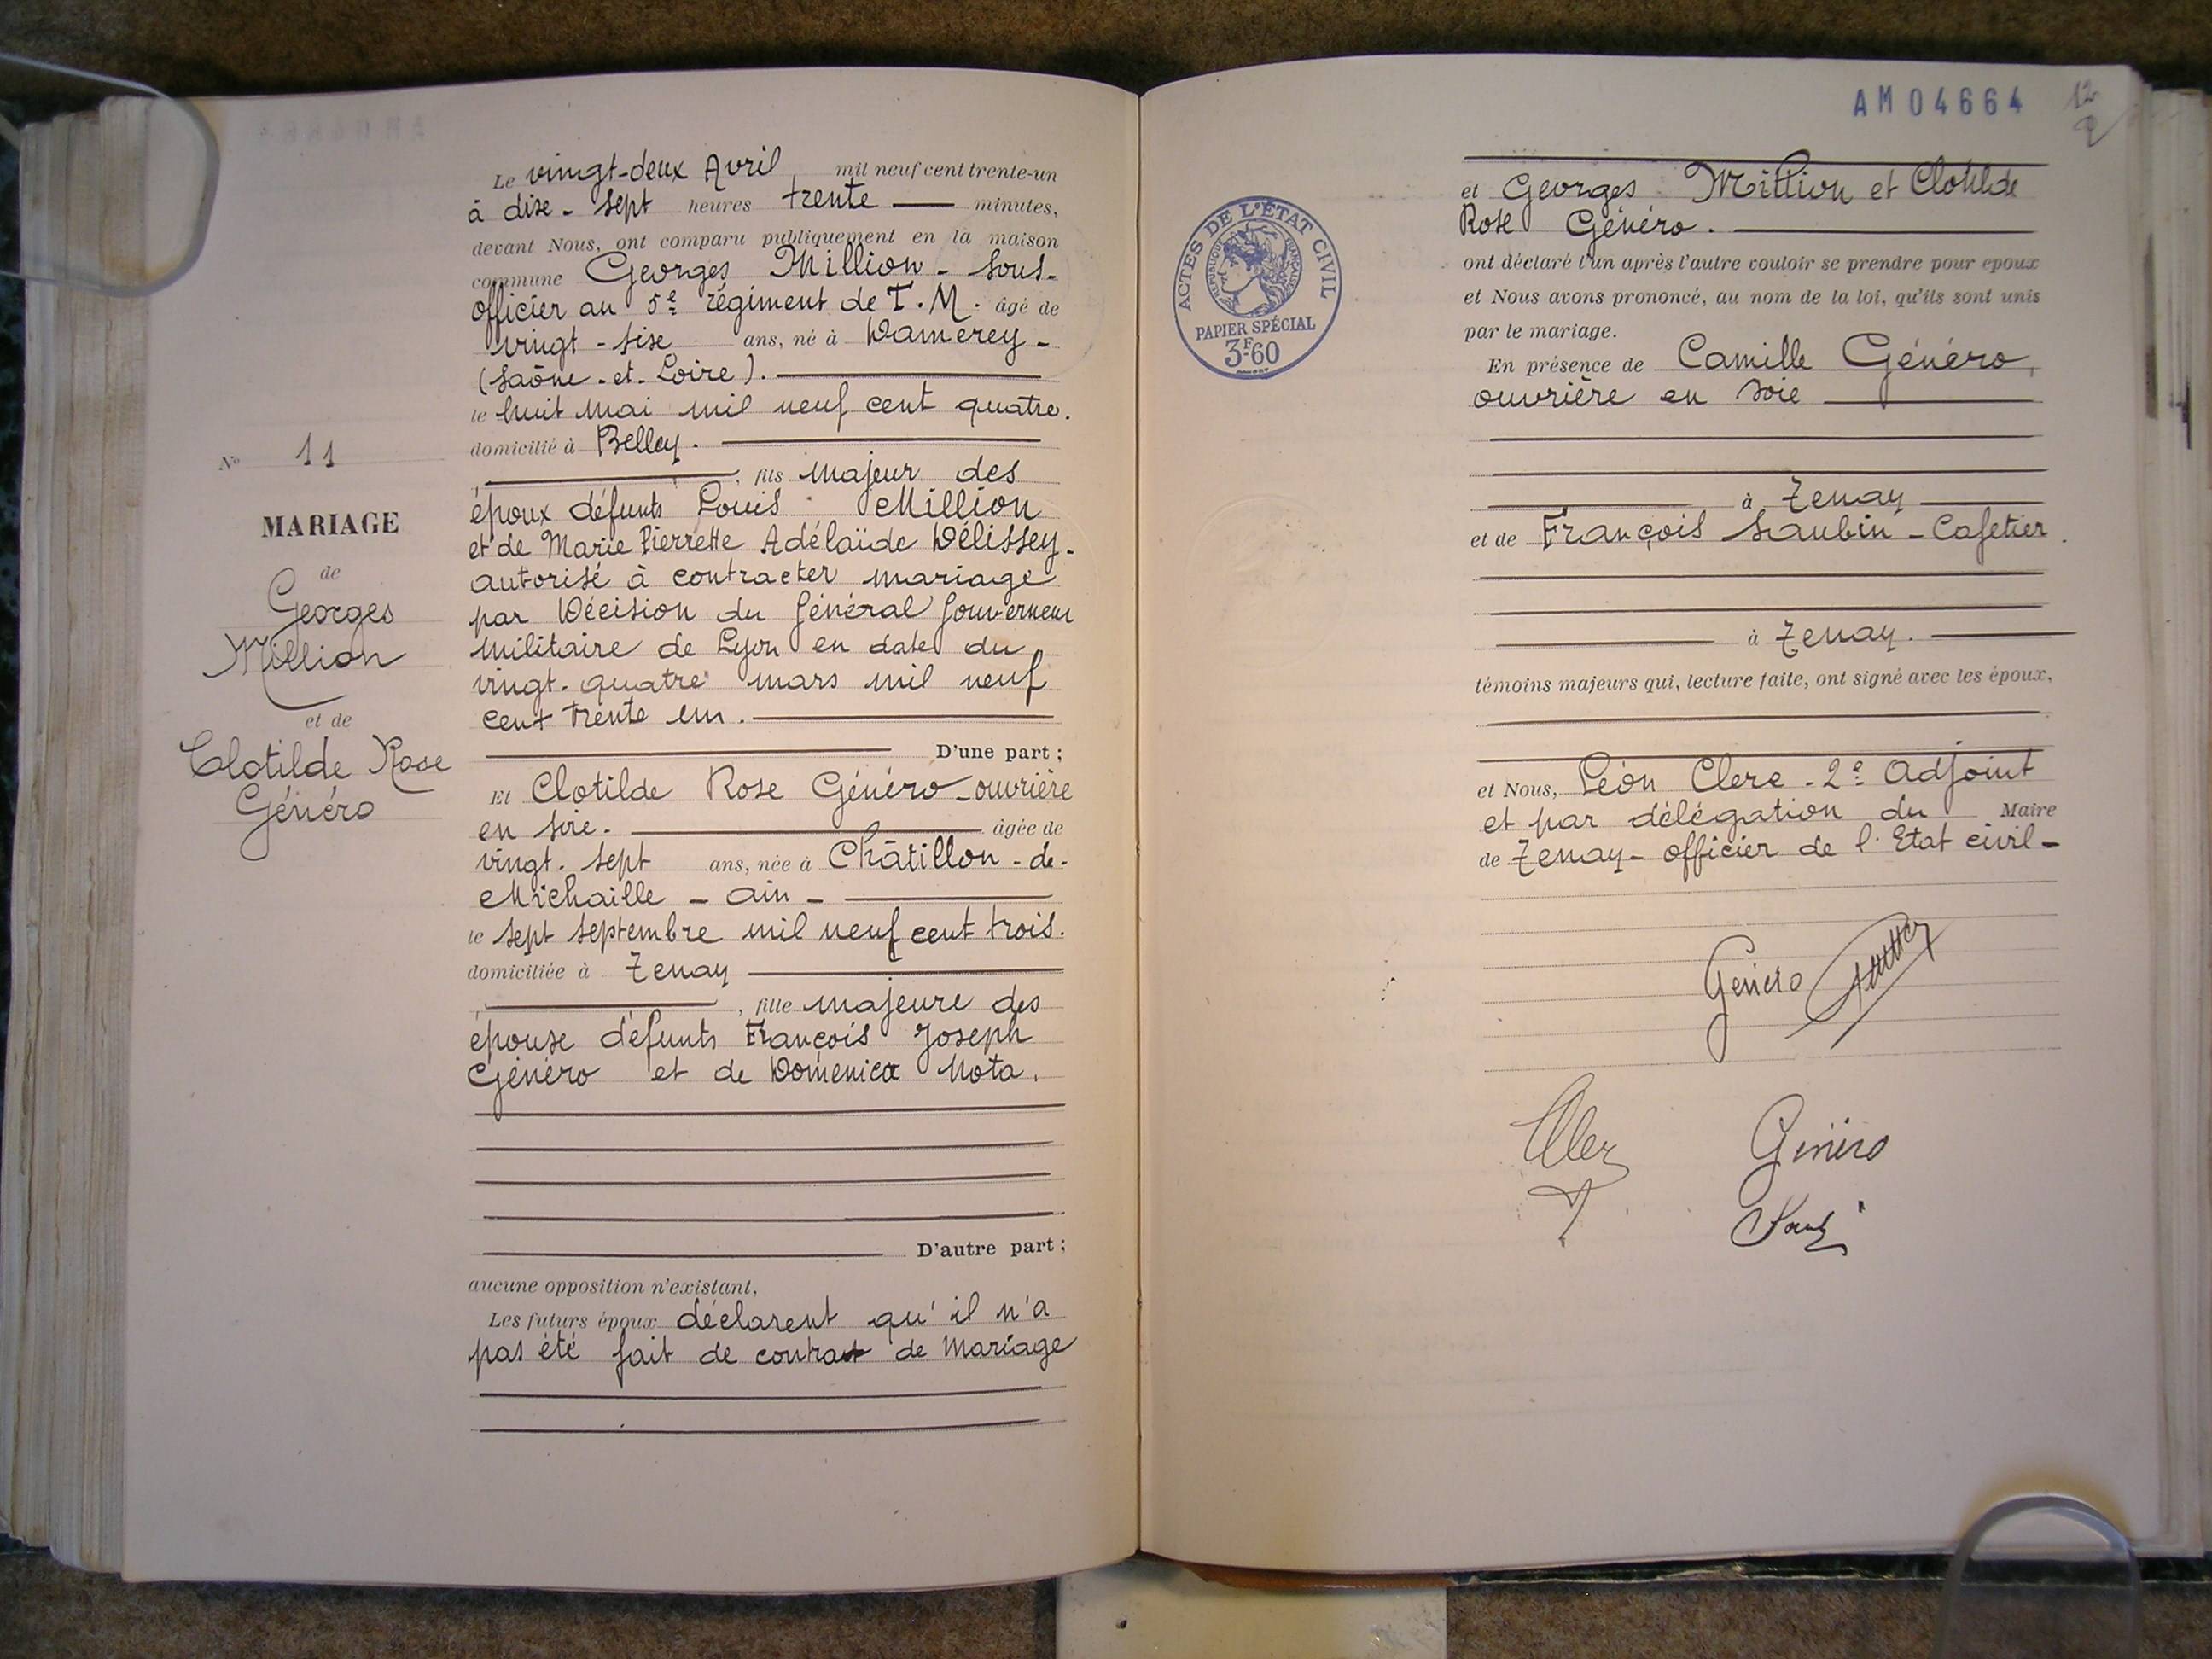 Le vingt-deux Avril mil neuf cent trente-un
à dise-sept heures trente minutes,
devant Nous, ont comparu publiquement en la maison
commune Georges Million - Sous-
officier au 5e régiment de T. M. âgé de
vingt-sise ans, né à Damerey -
(Saône-et-Loire).
le huit Mai mil neuf cent quatre.
domicilié à Belley.
, fils Majeur des
époux défunts Louis Million
et de Marie Pierrette Adélaïde Délissey.
autorisé à contracter mariage
par Décision du Général Gouverneur
Militaire de Lyon en date du
vingt-quatre mars mil neuf
cent trente un.
D'une part ;
Et Clotilde Rose Généro - ouvrière
en soie. âgée de
vingt-sept ans, née à Châtillon-de-
Michaille - Ain -
le sept septembre mil neuf cent trois.
domiciliée à Tenay
, fille majeure des
épouse défunts François Joseph
Généro et de Domenica Nota.
D'autre part ;
aucune opposition n'existant,
Les futurs époux déclarent qu'il n'a
pas été fait de contrat de Mariage
No 11
MARIAGE
de
Georges
Million
et de
Clotilde Rose
Généro
AM04664
12
ACTES DE L'ÉTAT CIVIL
RÉPUBLIQUE FRANÇAISE
PAPIER SPÉCIAL
3F60
et Georges Million et Clotilde
Rose Généro.
ont déclaré l'un après l'autre vouloir se prendre pour époux
et Nous avons prononcé, au nom de la loi, qu'ils sont unis
par le mariage.
En présence de Camille Généro,
ouvrière en Soie
à Tenay
et de François Saubin - Cafetier.
à Tenay.
témoins majeurs qui, lecture faite, ont signé avec les époux,
et Nous, Léon Clere - 2e Adjoint
et par délégation du Maire
de Tenay - officier de l'Etat civil -
Généro
Généro